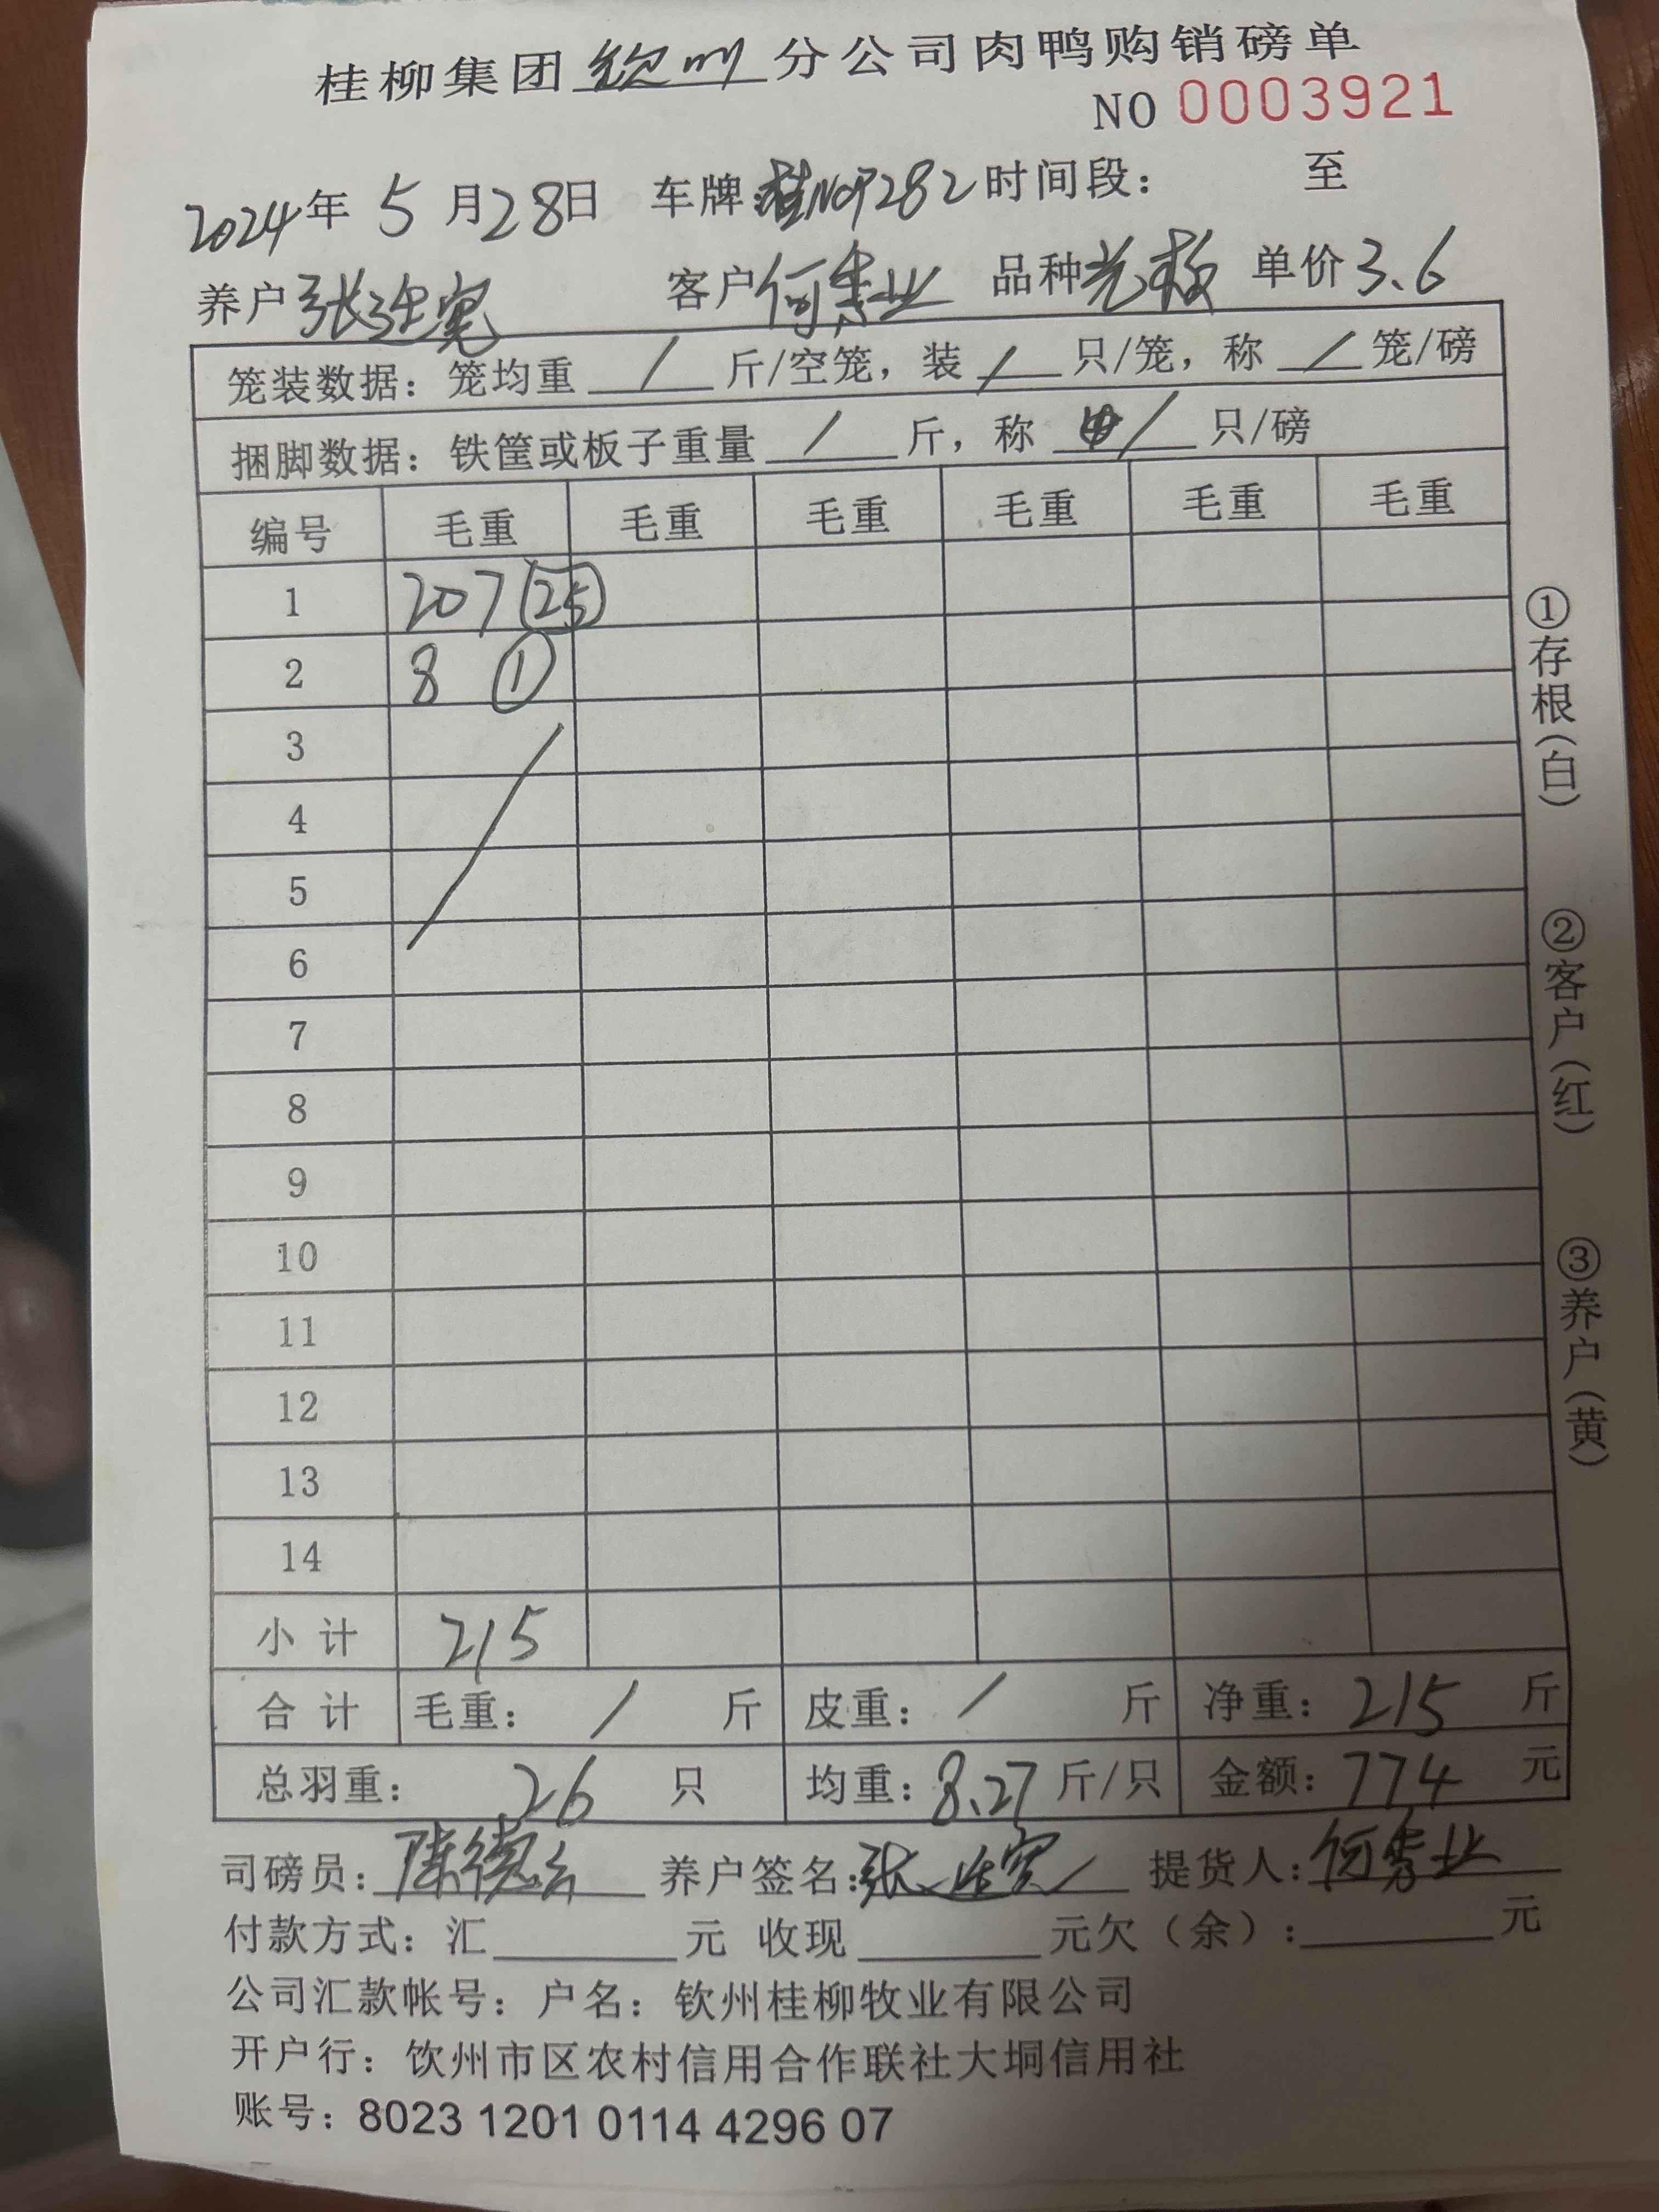 桂柳集团钦州分公司肉鸭购销磅单
NO 0003921
2024年 5 月28日 车牌:桂NOP282 时间段: 至
养户 张连宽 客户 何秀业 品种 单价 3.6
笼装数据:笼均重 / 斤/空笼,装 / 只/笼,称 / 笼/磅
捆脚数据:铁筐或板子重量 / 斤,称 / 只/磅
编号 毛重 毛重 毛重 毛重 毛重 毛重
1 207 (25)
2 8 ①
3
4
5
6
7
8
9
10
11
12
13
14
小计 215
合计 毛重: / 斤 皮重: / 斤 净重: 215 斤
总羽重: 26 只 均重: 8.27 斤/只 金额: 774 元
司磅员: 陈德 养户签名: 张连宽 提货人: 何秀业
付款方式:汇 元 收现 元欠(余): 元
公司汇款帐号:户名:钦州桂柳牧业有限公司
开户行:钦州市区农村信用合作联社大垌信用社
账号:8023 1201 0114 4296 07
①存根(白)
②客户(红)
③养户(黄)